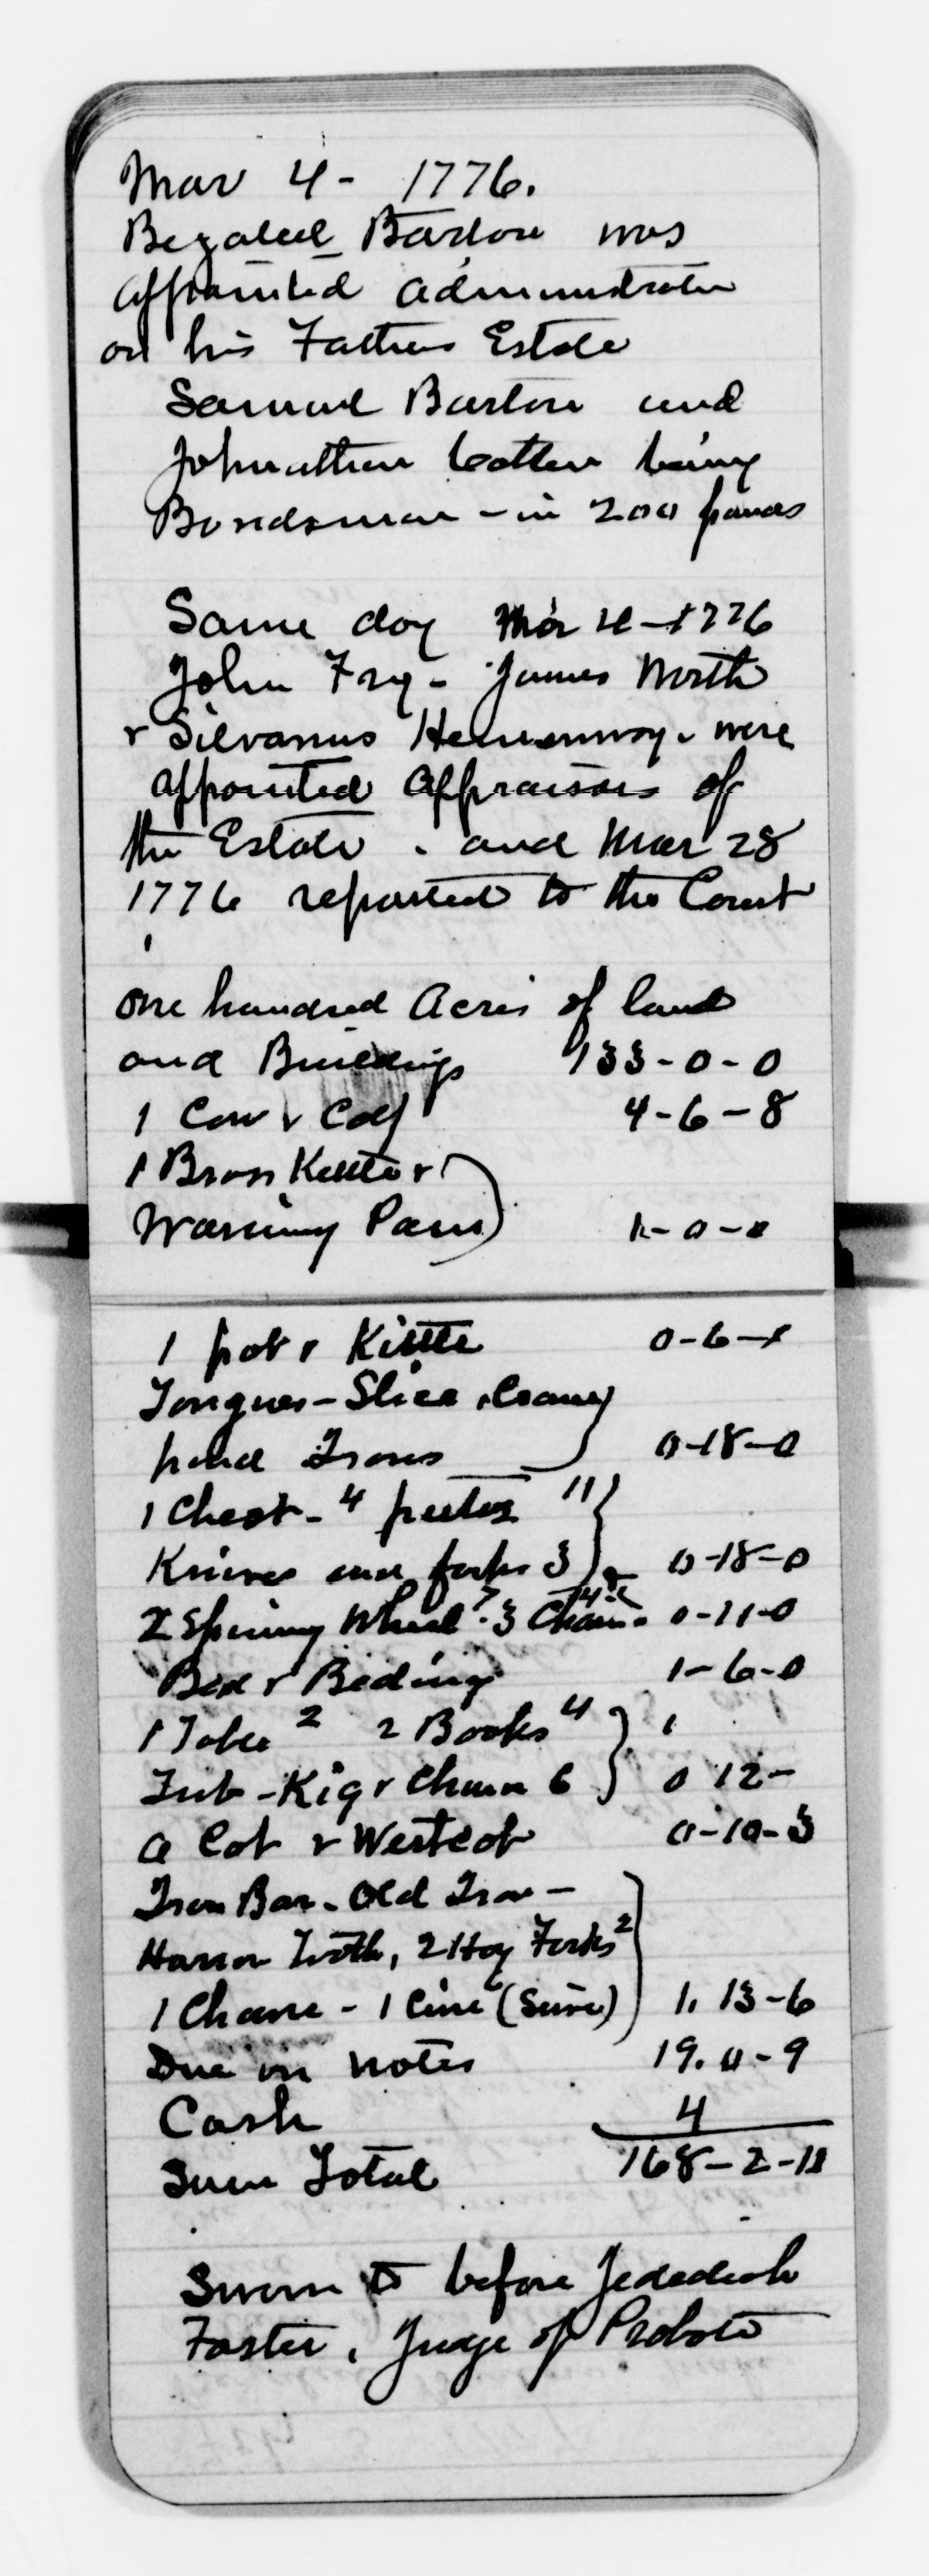 Mar 4 - 1776.
Bezaleel Barton was
appointed administrator
on his Fathers Estate
Samuel Barton and
Johnathan Cotten being
Bondsman - in 200 pounds
Same day Mar 4 - 1776
John Fry - James North
& Silvanus Hemenway. were
appointed appraisors of
the Estate. and Mar 28
1776 reported to the Court
one hundred Acres of land
and Buildings 133-0-0
1 Cow & Calf 4-6-8
1 Brass Kettle &
Warming Pans) 1-0-0
1 pot & Kittle 0-6-
Tongues - Slice, Crane
hand Irons 0-18-0
1 Chest - 4 11
Knives and forks 3 } 0-18-0
2 Spinning Wheel 7. 3 Chairs 0-11-0
Bed & Beding 1-6-0
1 Table 2 2 Books 4
Tub - Kig & Churn 6 } 0 12-
a Cot & Westcot 0-10-3
Iron Bar - Old Iron -
Harrow Teeth, 2 Hay Forks 2
1 Chane - 1 Cive (Sive) 1. 13-6
Due on notes 19. 0-9
Cash 4
Sum Total 168-2-11
Sworn to before Jedediah
Foster, Judge of Probate